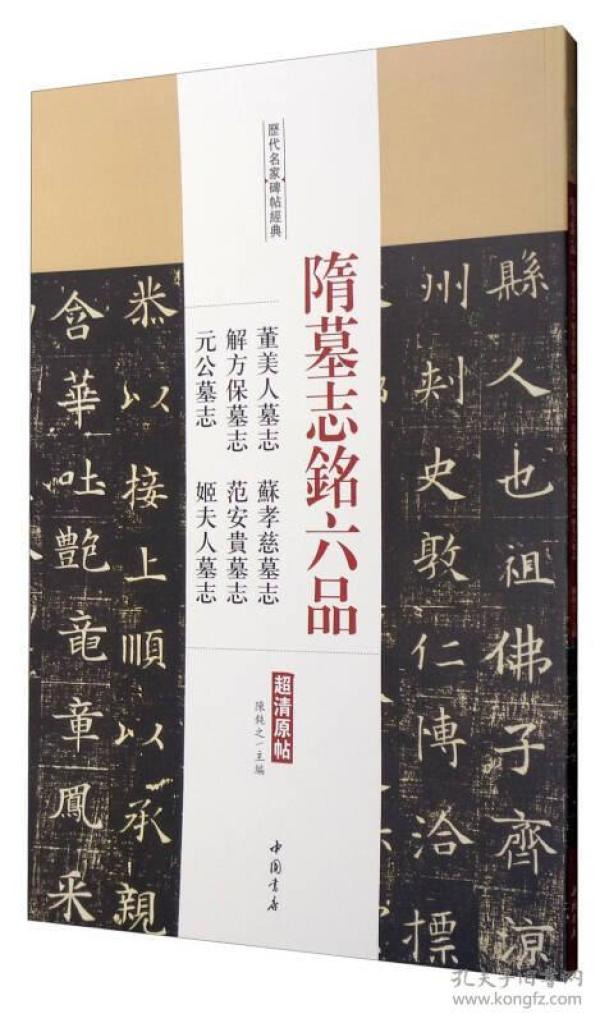 歷代名家碑帖經典
隋墓志銘六品
董美人墓志 蘇孝慈墓志
解方保墓志 范安貴墓志
元公墓志 姬夫人墓志
超清原帖
陳鈍之一主編
中國書店
縣人也祖佛子齊涼
州刺史敦仁博洽摽
恭以接上順以承親
含華吐艷竜章鳳采
孔夫子旧书网
www.kongfz.com